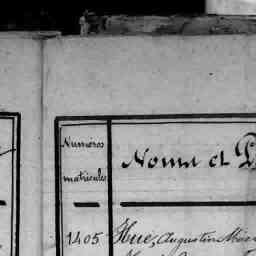 Numéros
matricules
Noms et P
1405 Hue, Augustin